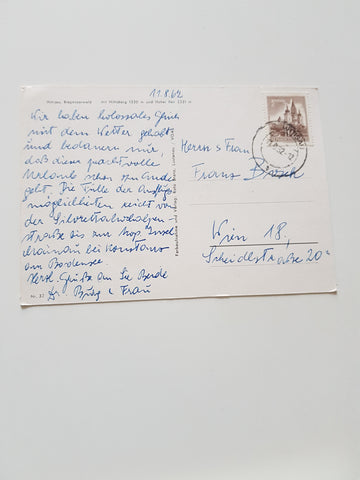 11.8.62
Hittisau, Bregenzerwald mit Hittisberg 1330 m und Hoher Ifen 2231 m
Wir haben kolossales Glück
mit dem Wetter gehabt
und bedauern nur,
daß dieser prachtvolle
Urlaub schon zu Ende
geht. Die Fülle der Ausflugs-
möglichkeiten reicht von
der Silvrettahochalpen-
straße bis zur Insel
Mainau bei Konstanz
am Bodensee.
Herzl. Grüße an Sie Beide
Burg u. Frau
Nr. 32
Herrn u Frau
Franz
Wien 18,
Scheidlstraße 20